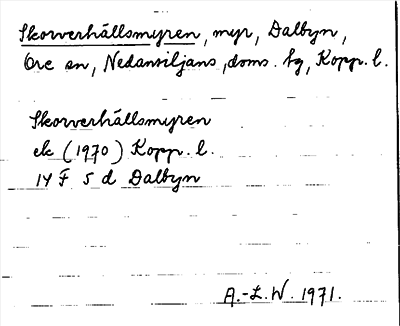 Skorverhällsmyren, myr, Dalbyn,
Ore sn, Nedansiljans, doms. tg, Kopp. l.
Skorverhällsmyren
ek (1970) Kopp. l.
14 F 5 d Dalbyn
A.-L.W. 1971.